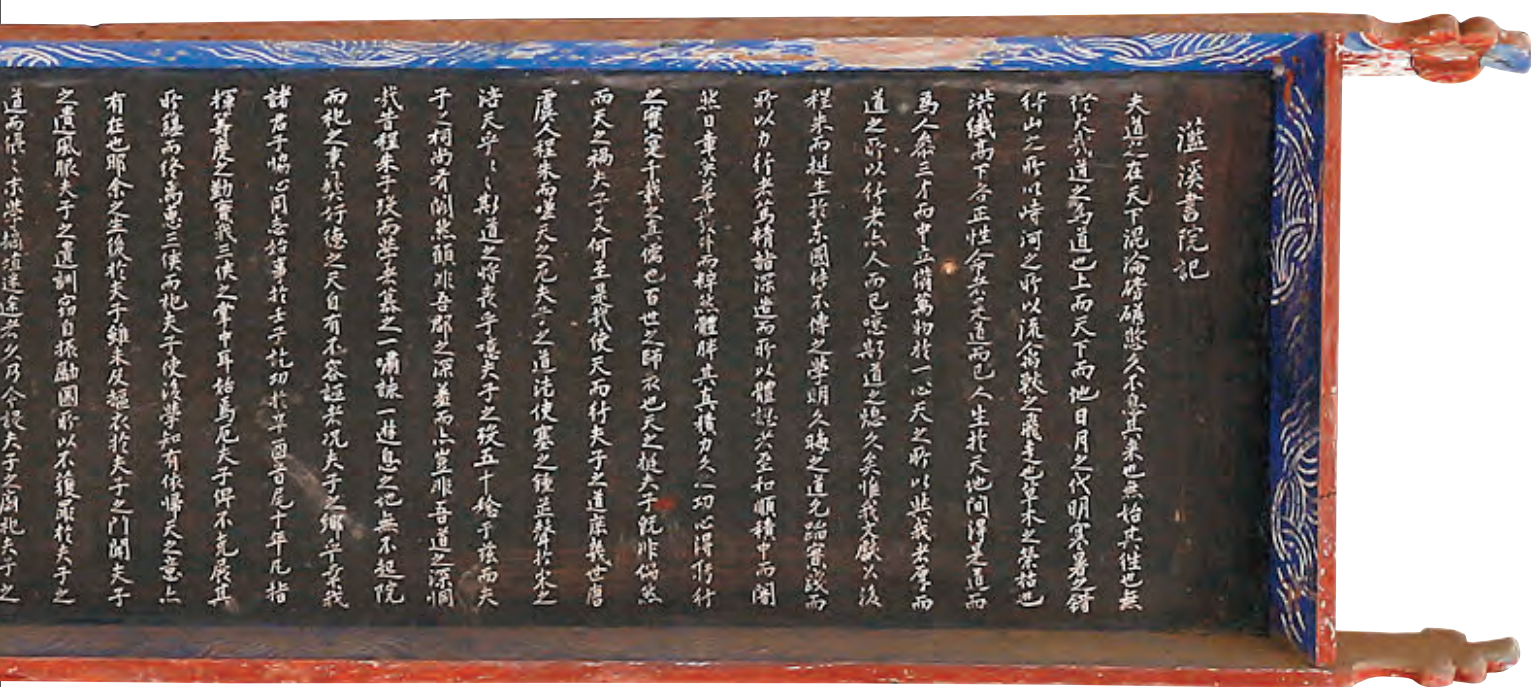 灆溪書院記
夫道之在天下混淪磅礴悠久不息其來也無始其往也無
終大哉道之爲道也上而天下而地日月之代明寒暑之錯
行山之所以峙河之所以流禽獸之飛走也草木之榮枯也
洪纖高下各正性命道而已人生於天地間得是道而
爲人參三才而中立備萬物於一心天之所以與我者厚而
道之所以行者亦人而已噫斯道之熄久矣惟我文獻公後
程朱而挺生於東國傳不傳之學明久晦之道允蹈實踐而
所以力行者篤精詣深造而所以體認者至和順積中而闇
然日章英華發外而粹然體胖其真積力久之功心得躬行
之實寔千載之真儒也百世之師表也天之挺夫子旣非偶然
而天之禍夫子又何至是哉使天而行夫子之道庶幾世唐
虞人程朱而噫天之厄夫子之道使塞之鍾正聲於之
浩天乎〻斯道之將喪乎噫夫子之歿五十餘于茲而夫
子之祠尚有闕然顧非吾郡之深羞而亦豈非吾道之深憫
哉昔程朱子歿而學者慕之一嘯詠一遊息之地無不起院
而祀之秉德之天自有不容誣者况夫子之鄕乎我
諸君子協心同志始事於壬子訖功於十年凡措
揮之勤實我三侯之掌中耳始焉厄夫子俾不克展其
所蘊而終焉惠三侯而祀夫子使後學知有依歸天之意亦
有在也耶余之生後於夫子雖未及摳衣於夫子之門聞夫子
之遺風服夫子之遺訓竊自振勵圖所以不獲罪於夫子之
道而倀〻末學擿埴迷途者久乃今設夫子之廟祀夫子之